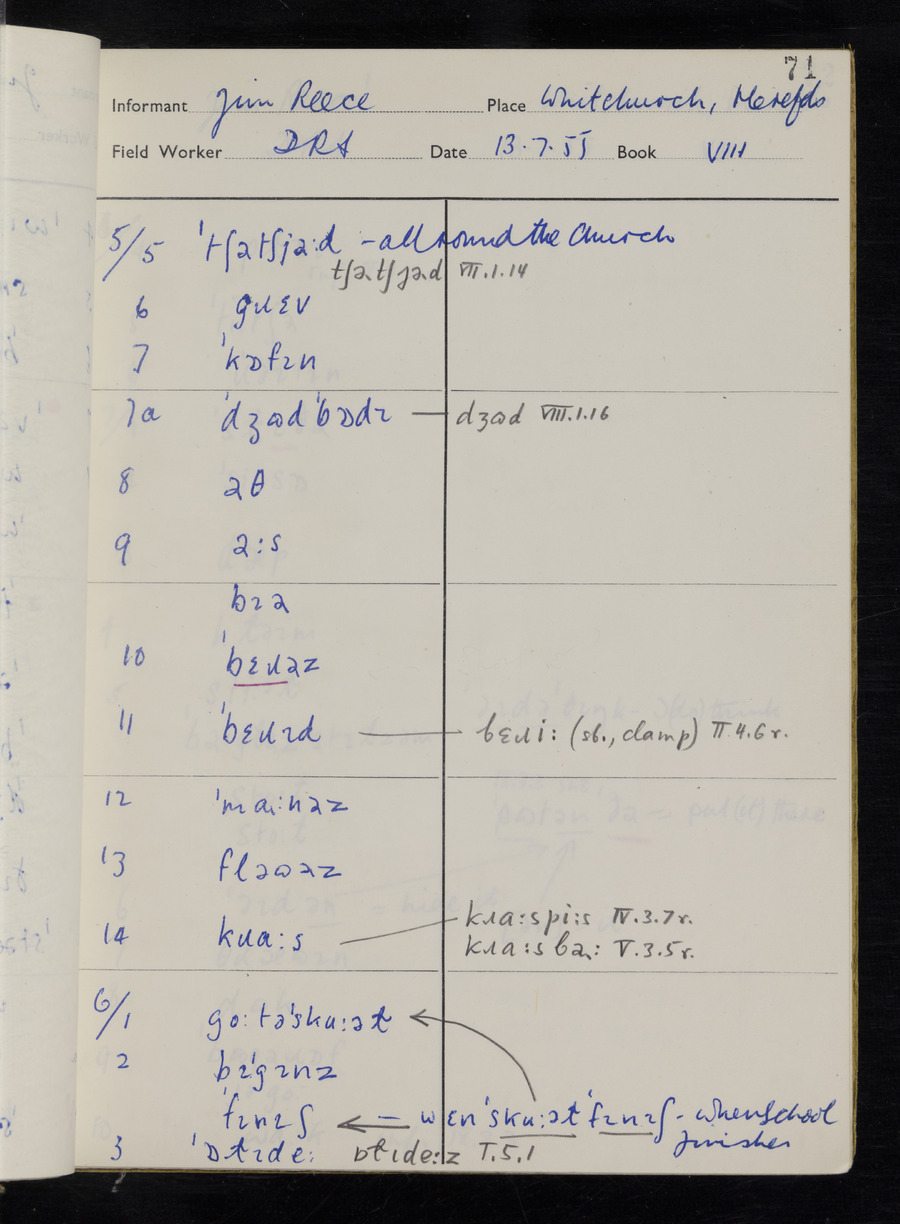 71
Informant Jim Reece Place Whitchurch, Herefds
Field Worker DRS Date 13.7.55 Book VIII
5/5 ˈtʃətʃjəːd - all round the Church
tʃətʃjəd VII.1.14
6 gɹɛv
7 ˈkɒfɪn
7a ˈdʒɷdˈbɒdɪ — dʒɷd VIII.1.16
8 əθ
9 əːs
bɪə
10 ˈbɛɹəz
11 ˈbɛɹɪd — bɛɹiː (sb., clamp) II.4.6r.
12 ˈmaːnəz
13 flaɷəz
14 kɹɑːs
kɹɑːspiːs IV.3.7r.
kɹɑːsbaː V.3.5r.
6/1 goːtəˈskuːəɫ
2 bɪˈgɪnz
ˈfɪnɪʃ ← — wɛnˈskuːəɫˈfɪnɪʃ - when School finishes
3 ˈɒɫɪdeː ɒɫɪdeːz I.5.1